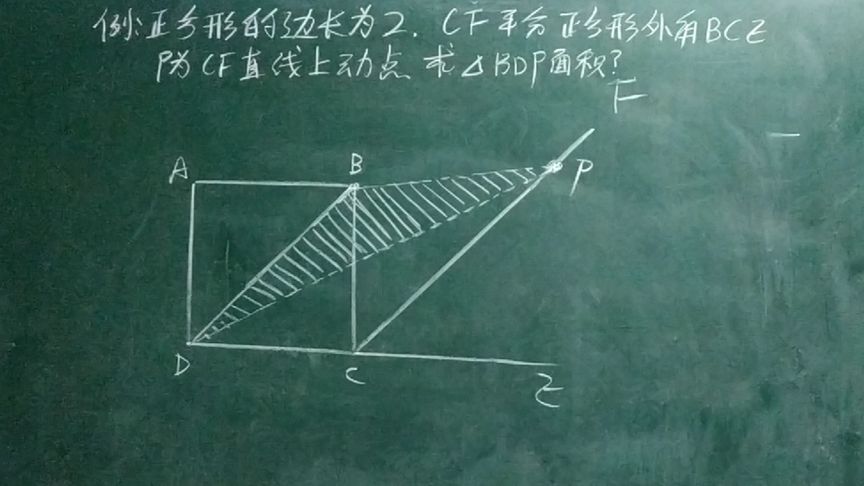 例:正方形的边长为2. CF平分正方形外角BCE
P为CF直线上动点 求△BDP面积?
F
A B P
D C E